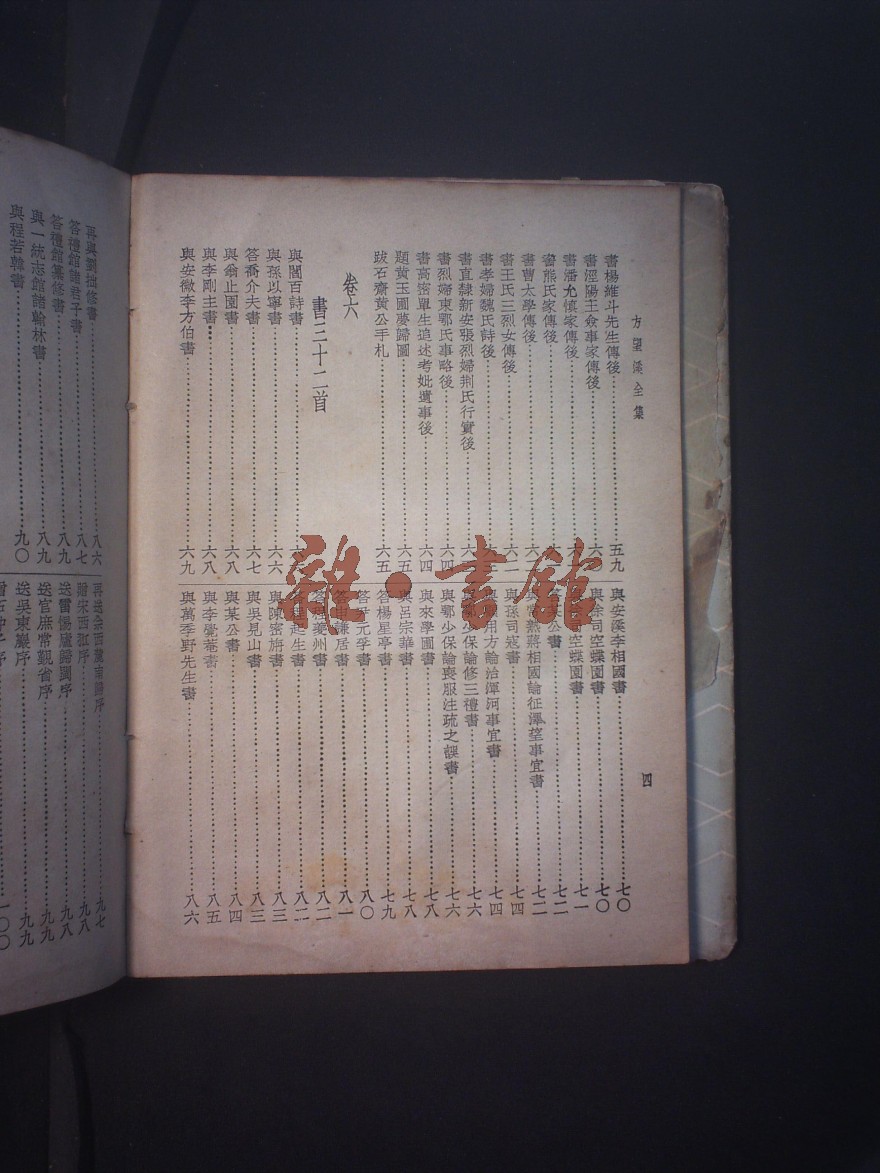 方望溪全集
四
書楊維斗先生傳後 五九
書涇陽王僉事家傳後 六
書潘允慎家傳後
書熊氏家傳後
書曹太學傳後 六二
書王氏三烈女傳後 六二
書孝婦魏氏詩後
書直隸新安張烈婦荆氏行實後
書烈婦東鄂氏事略後 六四
書高密單生追述考妣遺事後 六四
題黃玉圃夢歸圖 六五
跋石齋黃公手札 六五
卷六
書三十二首
與閻百詩書
與孫以寧書 六六
答喬介夫書 六七
與翁止園書 六八
與李剛主書 六八
與安徽李方伯書 六九
與安溪李相國書 七〇
與徐司空蝶園書 七〇
空蝶園書 七一
公書 七二
與常熟蔣相國論征澤望事宜書 七二
與孫司寇書 七四
用方論治渾河事宜書 七四
少保論修三禮書 七六
與鄂少保論喪服注疏之誤書 七六
與來學圃書 七八
與呂宗華書 七八
答楊星亭書 七九
答尹元孚書 八〇
答申謙居書 八一
答程夔州書 八二
答程起生書 八二
與陳密旃書 八三
與吳見山書 八三
與某公書 八四
與李覺菴書 八五
與萬季野先生書 八六
再與劉拙修書 八六
答禮館諸君子書 八七
答禮館纂修書 八九
與一統志館諸翰林書 八九
與程若韓書 九〇
再送余西麓南歸序 九七
贈宋西㵎序 九八
送雷惕廬歸閩序 九八
送官庶常覲省序 九九
送吳東巖序 九九
一〇〇
雜·書館